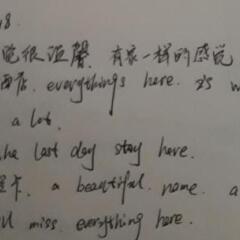 18.
觉很温馨. 有家一样的感觉
酒店. everythings here. is w
a lot.
he last day stay here.
a beautiful. name. a
ll miss. everything here.